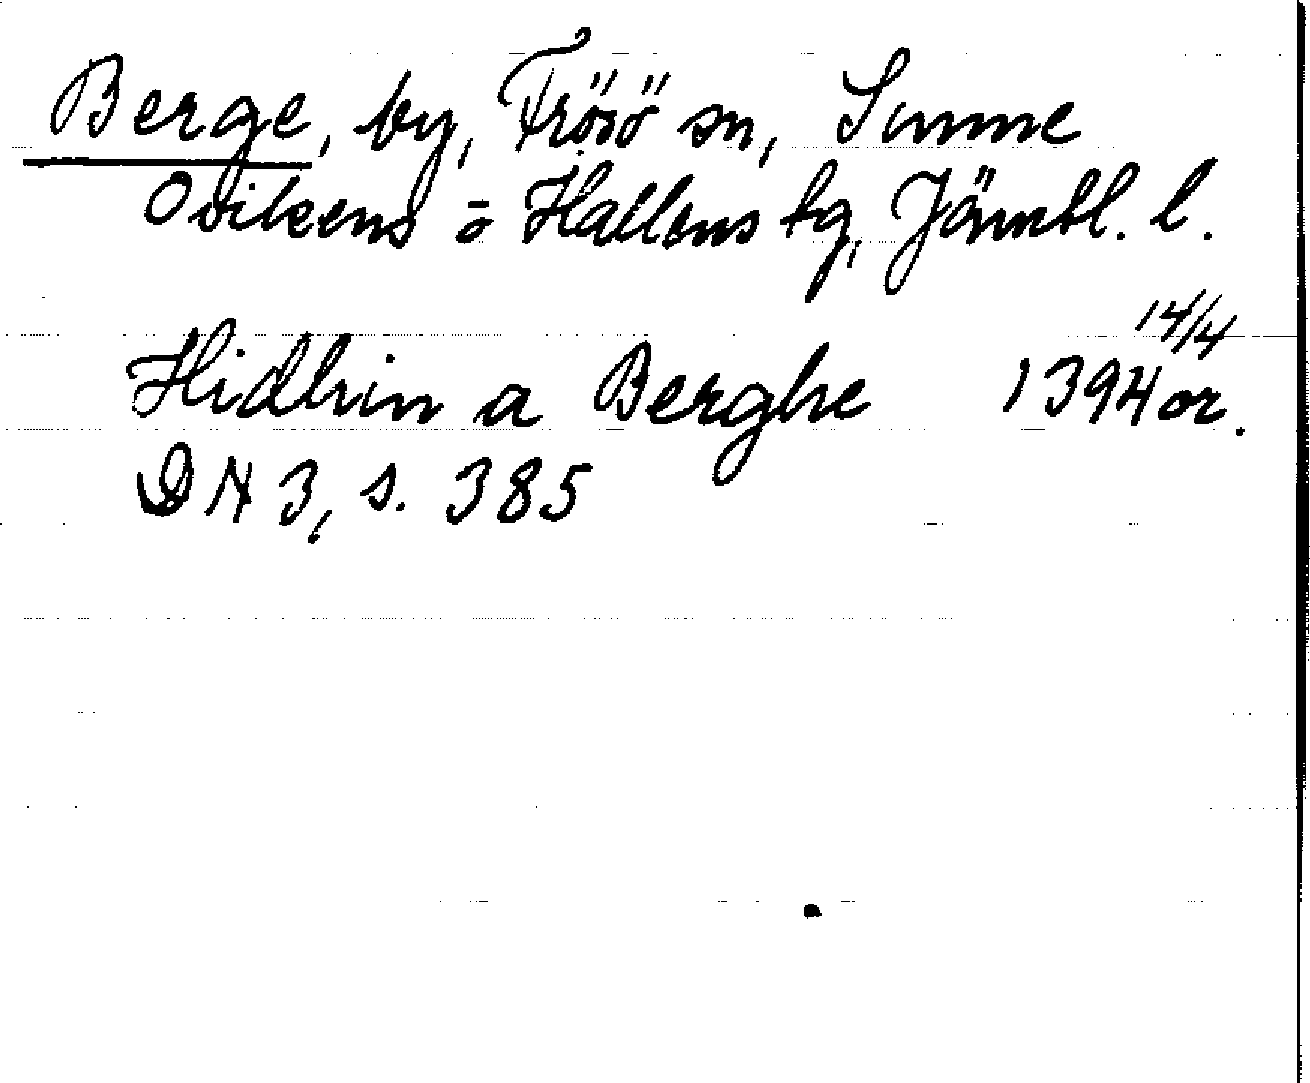 Berge, by, Frösö sn, Sunne
Ovikens o Hallens tg, Jämtl. l.
14/4
Hidhin a Berghe 1394 or.
DN 3, s. 385